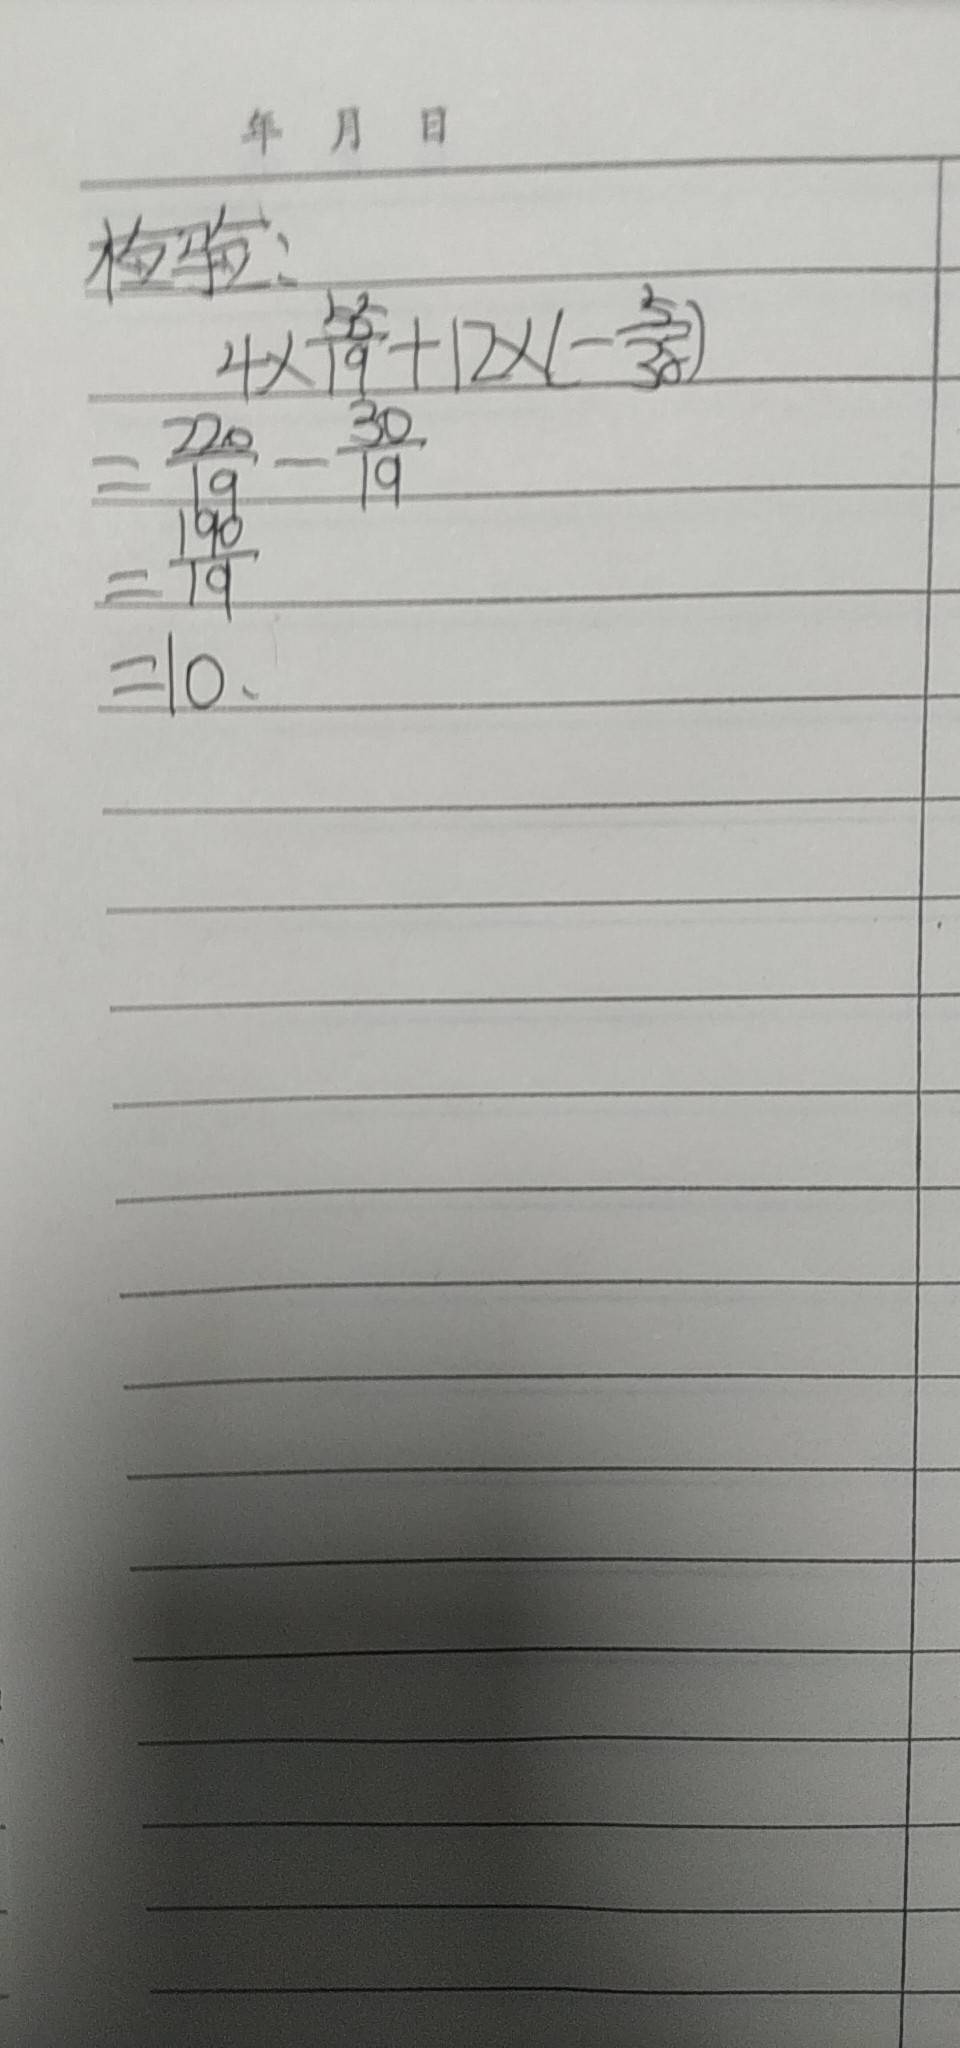 年 月 日
检验:
4×55/19+12×(-5/38)
=220/19-30/19
=190/19
=10.